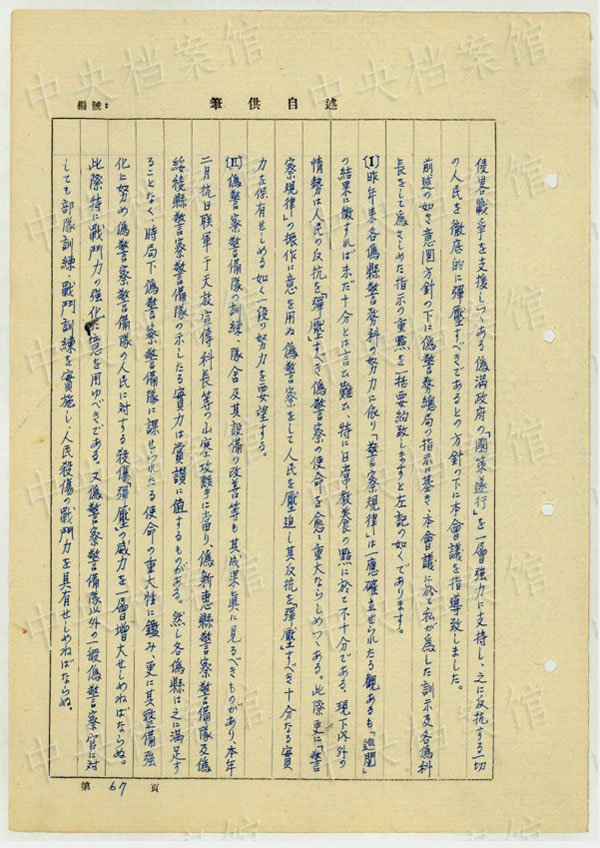 編號:
筆供自述
侵畧戰爭を支援しつゝある偽満政府の「國策遂行」を一層強力に支持し、之に反抗する一切
の人民を徹底的に彈壓すべきであるとの方針の下に本會議を指導致しました。
前述の如き意圖方針の下に偽警務總局の指示に基き、本會議に於て私が為した訓示及各偽科
長をして為さしめた指示の重點を一括要約致しますと左記の如くであります。
〔I〕昨年来各偽縣警務科の努力に依り「警察規律」は一應確立せられたる観あるも「巡閲」
の結果に徴すれば未だ十分とは言ひ難い、特に日常教養の點に於て不十分である、現下内外の
情勢は人民の反抗を「彈壓」すべき偽警察の使命を愈々重大ならしめつゝある。此際更に「警
察規律」の振作に意を用ゐ偽警察をして人民を壓迫し其反抗を「彈壓」すべき十分なる實
力を保有せしめる如く一段の努力を要望する。
〔II〕偽警察警備隊の訓練、隊舎及其設備の改善等も其成果眞に見るべきものがあり、本年
二月抗日联軍于天放宣傳科長等の山寨攻撃に當り、偽新惠縣警察警備隊及偽
綏稜縣警察警備隊の示したる實力は賞讃に値するものがある。然し各偽縣は之に満足す
ることなく、時局下偽警察警備隊に課せられたる使命の重大性に鑑み、更に其整備強
化に努め偽警察警備隊の人民に対する殺傷「彈壓」の威力を一層増大せしめねばならぬ。
此際特に戰鬥力の強化に意を用ゆべきである。又偽警察警備隊以外の一般偽警察官に対
しても部隊訓練、戰鬥訓練を實施し人民殺傷の戰鬥力を具有せしめねばならぬ、
第 67 頁
中央档案馆